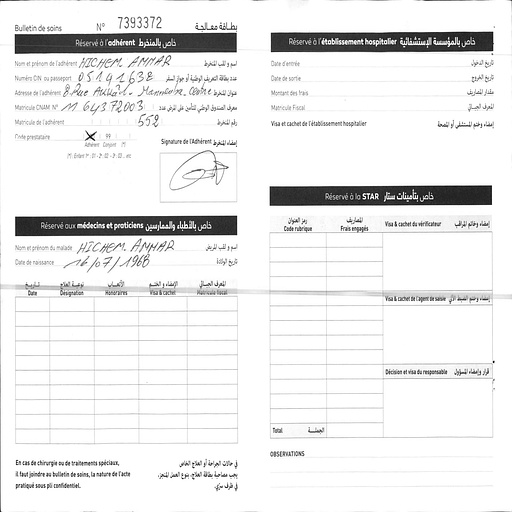 Bulletin de soins N° 7393372 بطاقة معالجة
Réservé à l'adhérent خاص بالمنخرط
Nom et prénom de l'adhérent HICHEM AMMAR اسم و لقب المنخرط
Numéro CIN ou passeport 05191638 عدد بطاقة التعريف الوطنية أو جواز السفر
Adresse de l'adhérent 8 Rue عنوان المنخرط
Matricule CNAM N° 64372003
Matricule de l'adhérent 552 رقم المنخرط
Code prestataire 99
Adhérent Conjoint (*)
Signature de l'Adhérent إمضاء المنخرط
Réservé aux médecins et praticiens خاص بالأطباء والممارسين
Nom et prénom du malade HICHEM AMMAR اسم و لقب المريض
Date de naissance 16/07/1968 تاريخ الولادة
تاريخ نوعية العلاج الأتعاب الإمضاء و الختم المعرف الجبائي
Date Désignation Honoraires Visa & cachet Matricule fiscal
En cas de chirurgie ou de traitements spéciaux,
il faut joindre au bulletin de soins, la nature de l'acte
pratiqué sous pli confidentiel.
في حالات الجراحة أو العلاج الخاص
يجب مصاحبة بطاقة العلاج، بنوع العمل المنجز،
في ظرف سري.
Réservé à l'établissement hospitalier خاص بالمؤسسة الإستشفائية
Date d'entrée تاريخ الدخول
Date de sortie تاريخ الخروج
Montant des frais مقدار المصاريف
Matricule Fiscal المعرف الجبائي
Visa et cachet de l'établissement hospitalier إمضاء وختم المستشفى أو المصحة
Réservé à la STAR خاص بتأمينات ستار
رمز العنوان المصاريف
Code rubrique Frais engagés
Visa & cachet du vérificateur إمضاء وخاتم المراقب
Visa & cachet de l'agent de saisie
Décision et visa du responsable قرار وإمضاء المسؤول
Total الجملة
OBSERVATIONS